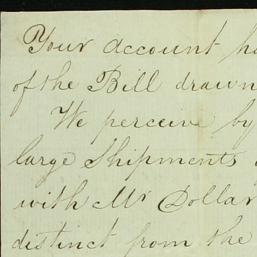 Your account ha
of the Bill drawn
We perceive by
large Shipments
with Mr Dollar
distinct from the